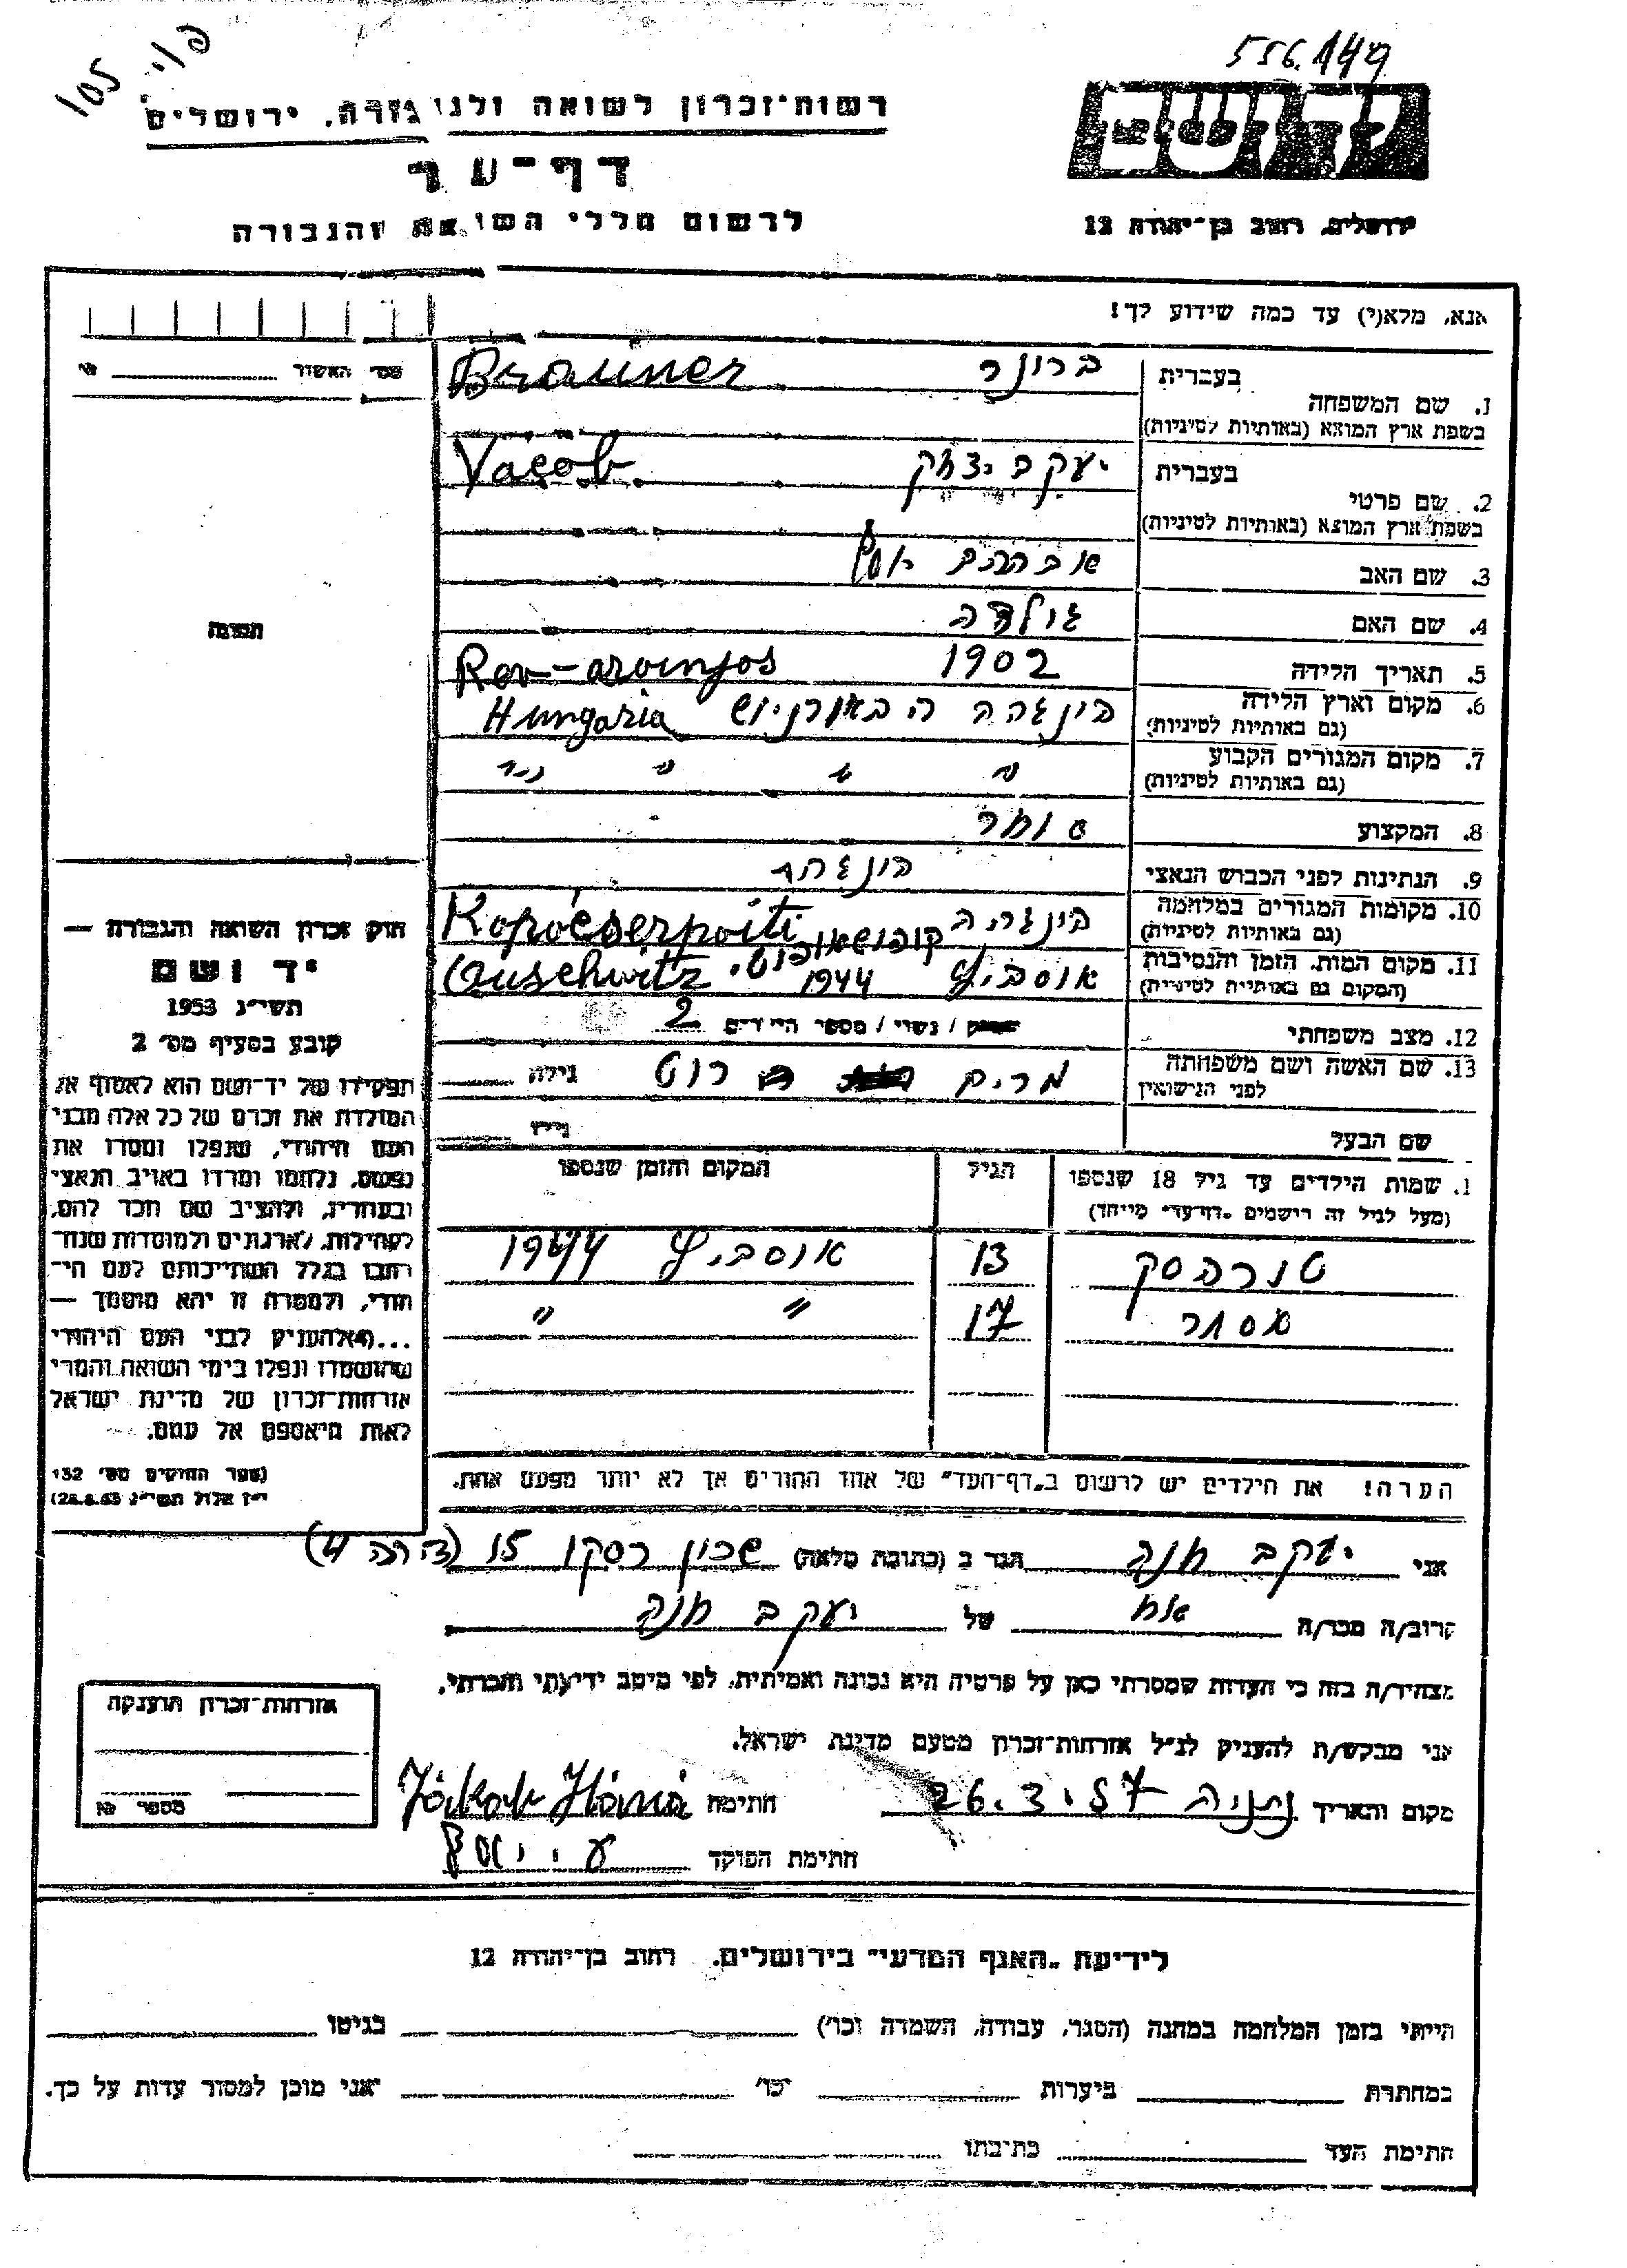 556.144
105
רשות־זכרון לשואה ולגבורה, ירושלים
דף־עד
לרשום חללי השואה והגבורה
יד ושם
ירושלים, רחוב בן־יהודה 12
אנא, מלא(י) עד כמה שידוע לך!
מס׳ האשור
1. שם המשפחה בעברית ברונר Brauner
בשפת ארץ המוצא (באותיות לטיניות)
2. שם פרטי בעברית יעקב יצחק Yacob
בשפת ארץ המוצא (באותיות לטיניות)
3. שם האב אברהם יוסף
4. שם האם גולדה
5. תאריך הלידה 1902
6. מקום וארץ הלידה הונגריה Hungaria
(גם באותיות לטיניות)
7. מקום המגורים הקבוע " " "
(גם באותיות לטיניות)
8. המקצוע סוחר
9. הנתינות לפני הכבוש הנאצי הונגריה
10. מקומות המגורים במלחמה הונגריה
(גם באותיות לטיניות)
11. מקום המות, הזמן והנסיבות אושביץ 1944 Auschwitz
(המקום גם באותיות לטיניות)
12. מצב משפחתי / נשוי / מספר הילדים 2
13. שם האשה ושם משפחתה מרים רוט גילה
לפני הנישואין
שם הבעל גילו
תמונה
חוק זכרון השואה והגבורה —
יד ושם
תשי״ג 1953
קובע בסעיף מס׳ 2
תפקידו של יד־ושם הוא לאסוף אל
המולדת את זכרם של כל אלה מבני
העם היהודי, שנפלו ומסרו את
נפשם, נלחמו ומרדו באויב הנאצי
ובעוזריו, ולהציב שם וזכר להם,
לקהילות, לארגונים ולמוסדות שנח־
רבו בגלל השתייכותם לעם היה־
ודי, ולמטרה זו יהא מוסמך —
...(4) להעניק לבני העם היהודי
שהושמדו ונפלו בימי השואה והמרי
אזרחות־זכרון של מדינת ישראל
לאות היאספם אל עמם.
(ספר החוקים מס׳ 132
י״ז אלול תשי״ג 28.8.53)
שמות הילדים עד גיל 18 שנספו הגיל המקום והזמן שנספו
(מעל לגיל זה רישומים „דף־עד״ מיוחד)
13 אושביץ 1944
אסתר 17 " "
הערה! את הילדים יש לרשום ב„דף־העד״ של אחד ההורים אך לא יותר מפעם אחת.
אני יעקב חנה הגר ב (כתובת מלאה) שכון רסקו 15 (דירה 4)
קרוב/ה מכר/ה אח של יעקב חנה
מצהיר/ה בזה כי העדות שמסרתי כאן על פרטיה היא נכונה ואמיתית, לפי מיטב ידיעתי והכרתי.
אני מבקש/ת להעניק לנ״ל אזרחות־זכרון מטעם מדינת ישראל.
מקום והאריך נתניה 26.3.57 חתימה Jákob Hána
חתימת הפוקד
אזרחות־זכרון הוענקה
מספר
לידיעת „האגף המדעי״ בירושלים, רחוב בן־יהודה 12
הייתי בזמן המלחמה במחנה (הסגר, עבודה, השמדה וכו׳) בגיטו
במחתרת ביערות וכו׳ אני מוכן למסור עדות על כך.
חתימת העד כתובתו